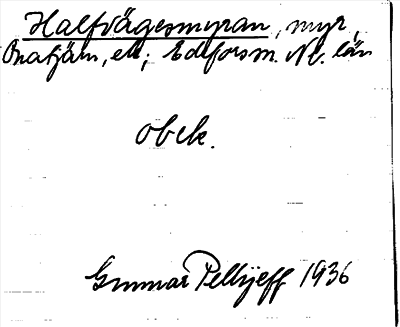 Halfvägesmyran, myr,
Bratjärn, ek; Edeforsm. Nb. län
obek.
Gunnar Pellijeff 1936